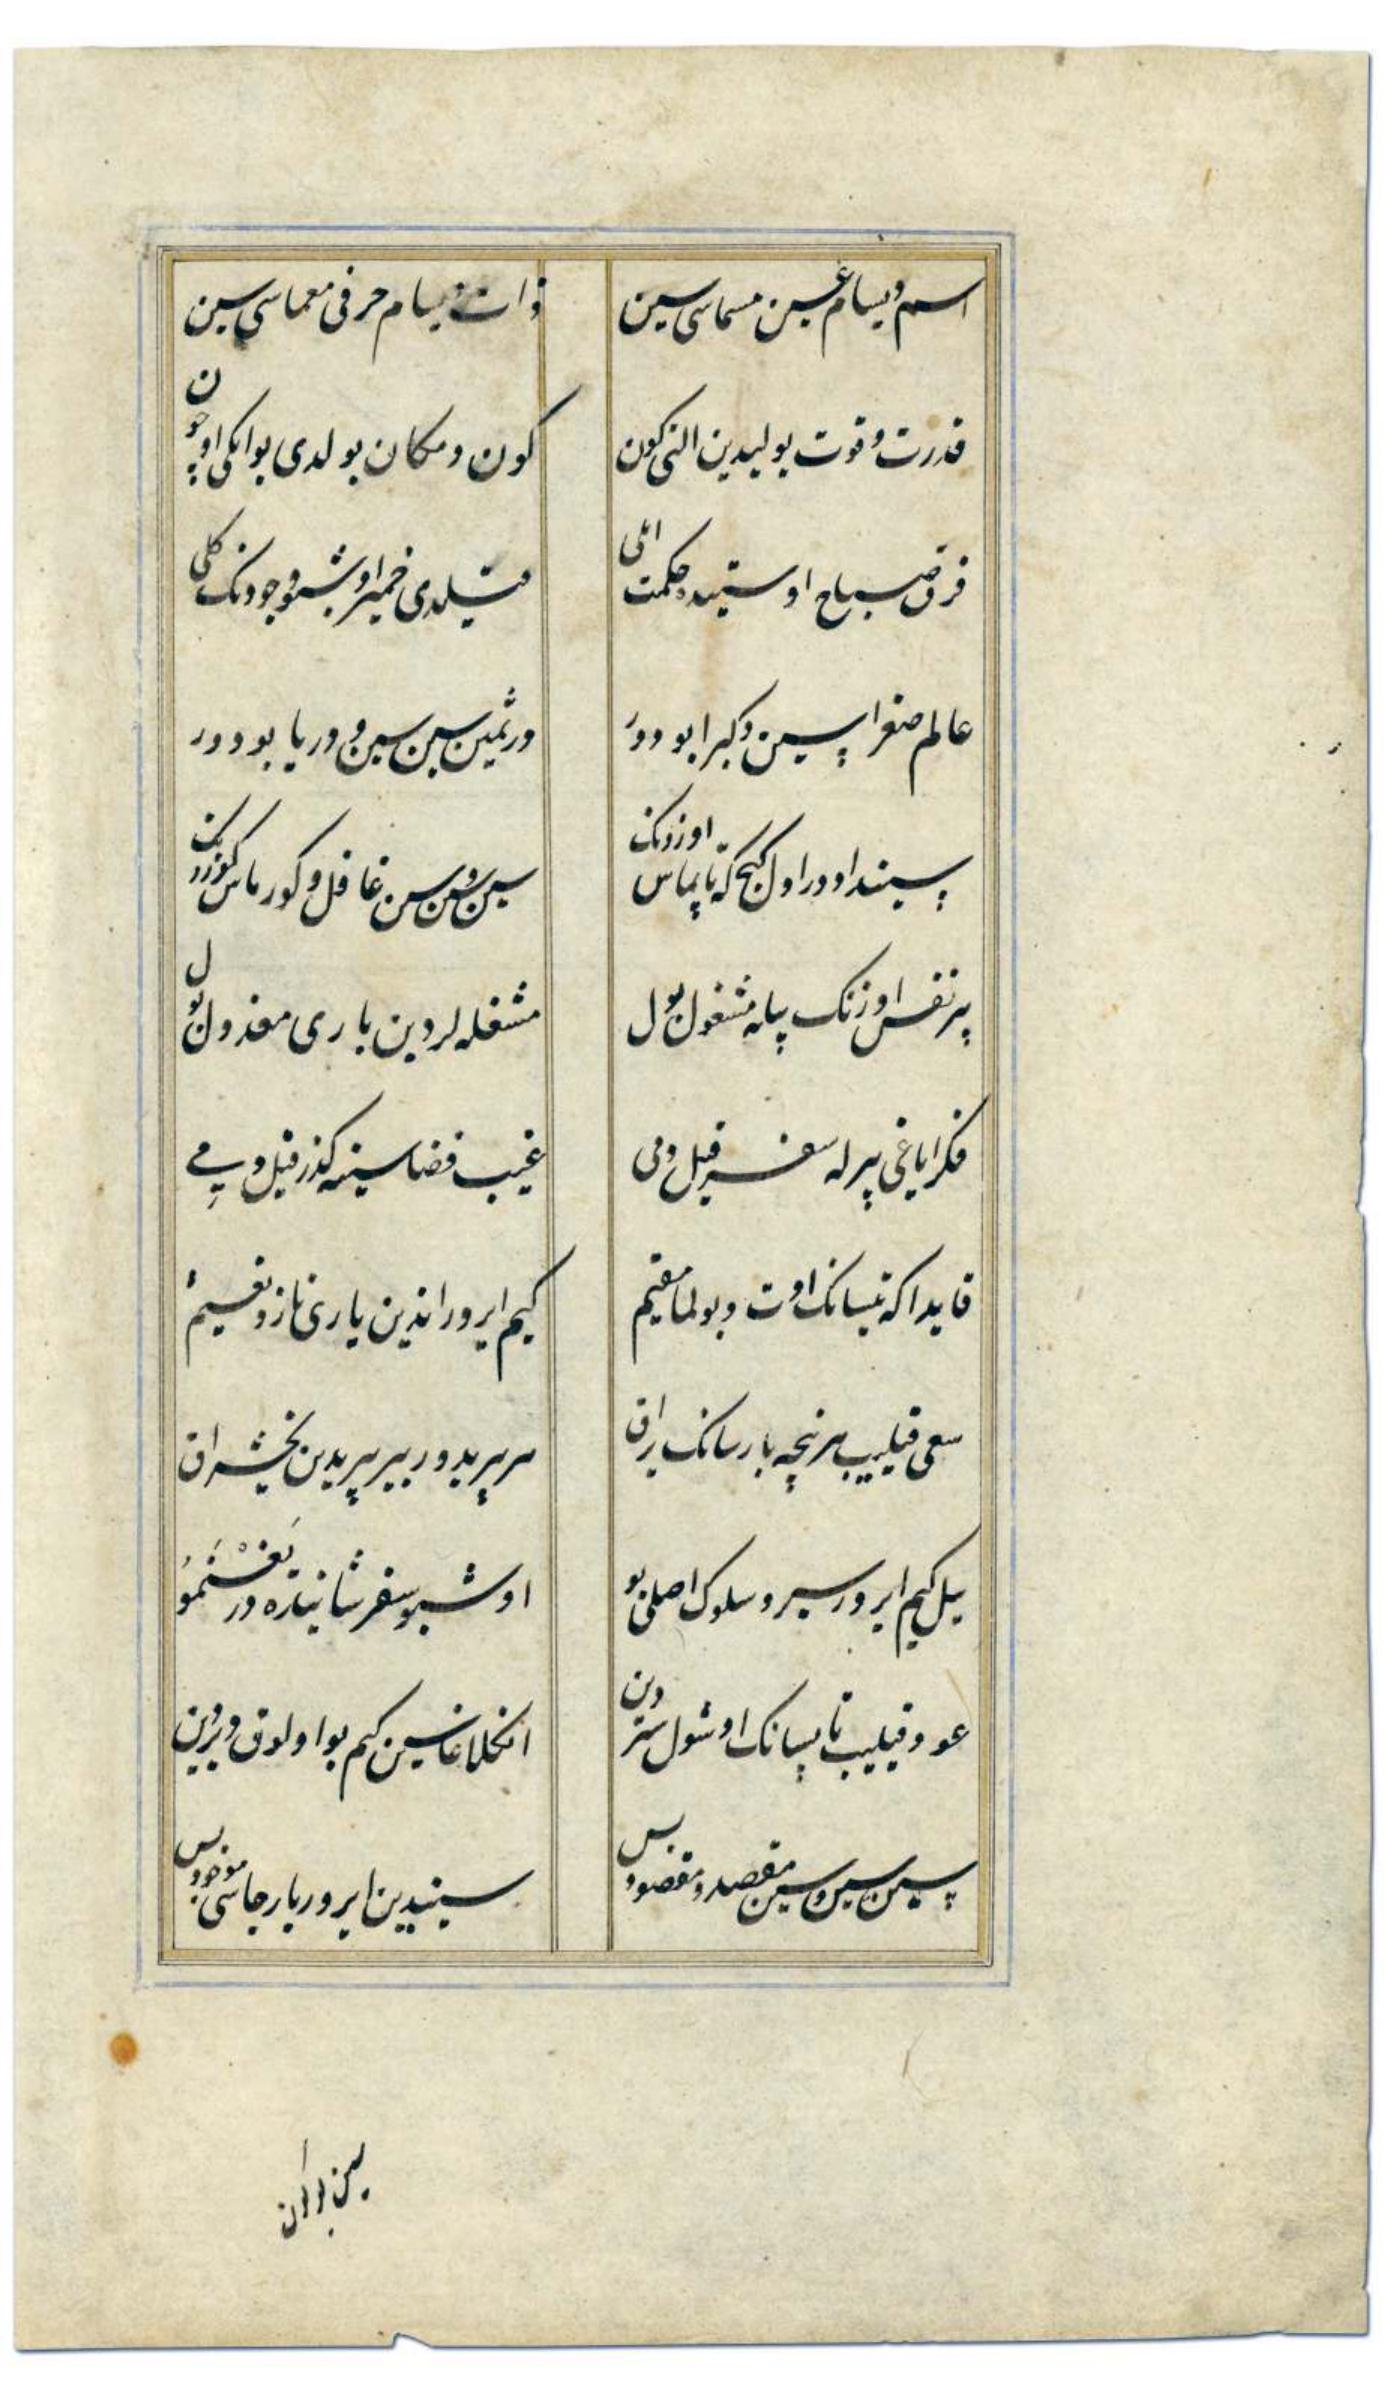 اسم دیسام عین مسماسی سین ذات دیسام حرفی معماسی سین
قدرت و قوت یولیدین التی کون کون و مکان بولدی بو ایکی اوچون
فرق صباح اوستیده حکمت ایلی قیلدی خمیر اوشبو وجودنک کلی
عالم صغرا سین و کبرا بودور در ثمین سین سین و دریا بودور
سیندا دور اول کنج که تاپماس اوزونک سین و سین سین غافل و کورماس کوزونک
بیر نفس اوزنک بیله مشغول بول مشغله لردین باری معذول بول
فکر ایاغی بیرله سفر قیل دمی غیب فضاسینه کذر قیل دمی
قایدا که تیسانک اوت و بولما مقیم کیم ایرور اندین یاری ناز و نعیم
سعی قیلیب هر نچه بارسانک یراق هر بیریدور بیر بیریدین یخشیراق
بیل کیم ایرور سیر و سلوک اصلی بو اوشبو سفر شانیتاره در
عود قیلیب تاپسانک اوشول ستردین انکلاغاسین کیم بو اولوق ویردین
سین سین و سین مقصد و مقصود بس سیندین ایرور بارچاسی موجود بس